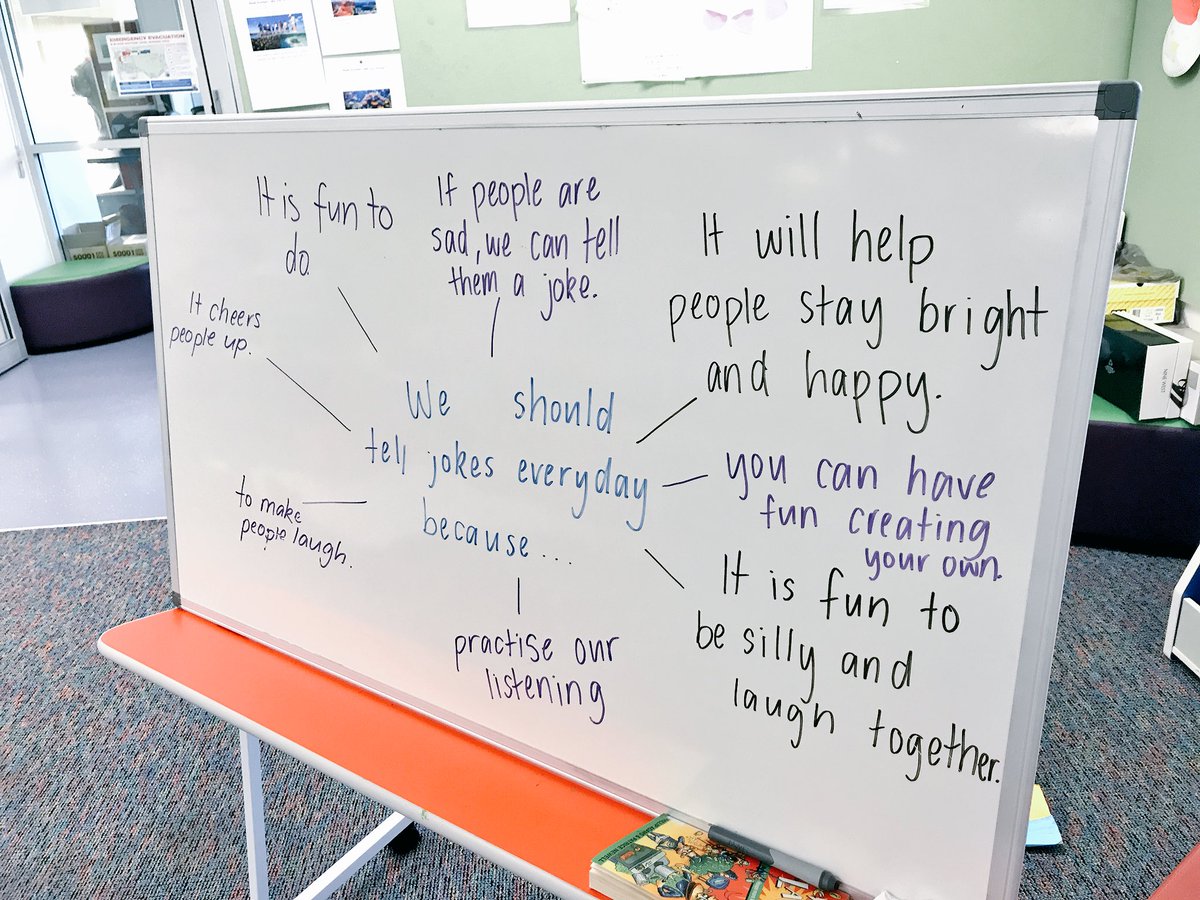 EMERGENCY EVACUATION
It is fun to
do.
If people are
sad, we can tell
them a joke.
It will help
people stay bright
and happy.
It cheers
people up.
We should
tell jokes everyday
because...
you can have
fun creating
your own.
to make
people laugh.
practise our
listening
It is fun to
be silly and
laugh together.